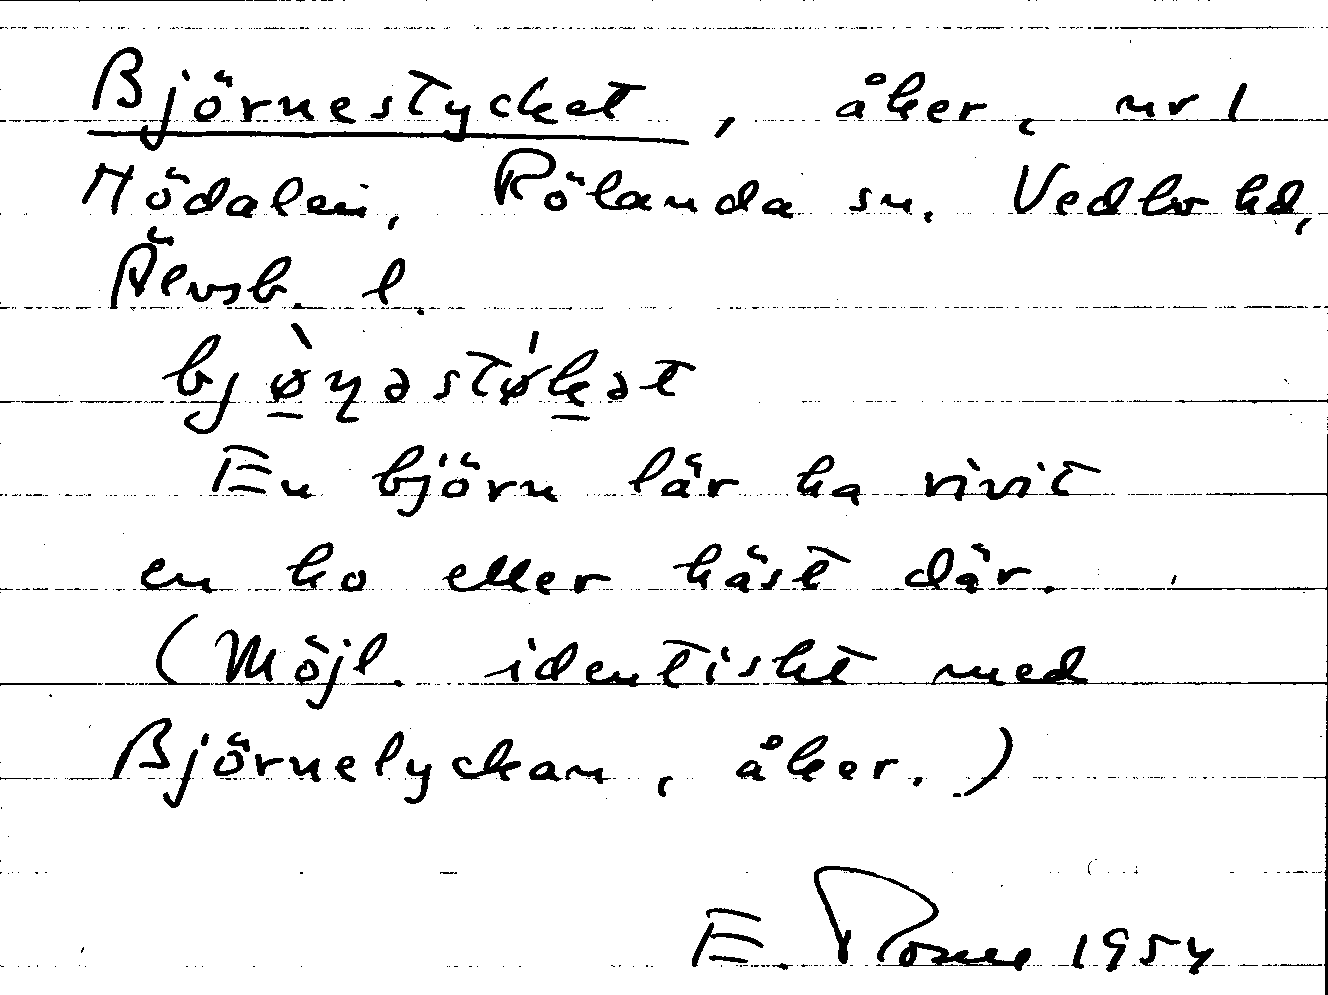 Björnestycket, åker, nr 1
Hödalen, Rölanda sn. Vedbo hd,
Älvsb. l.
bjø̀ɳəstǿkət
En björn lär ha rivit
en ko eller häst där.
(Möjl. identiskt med
Björnelyckan, åker.)
E. 1954